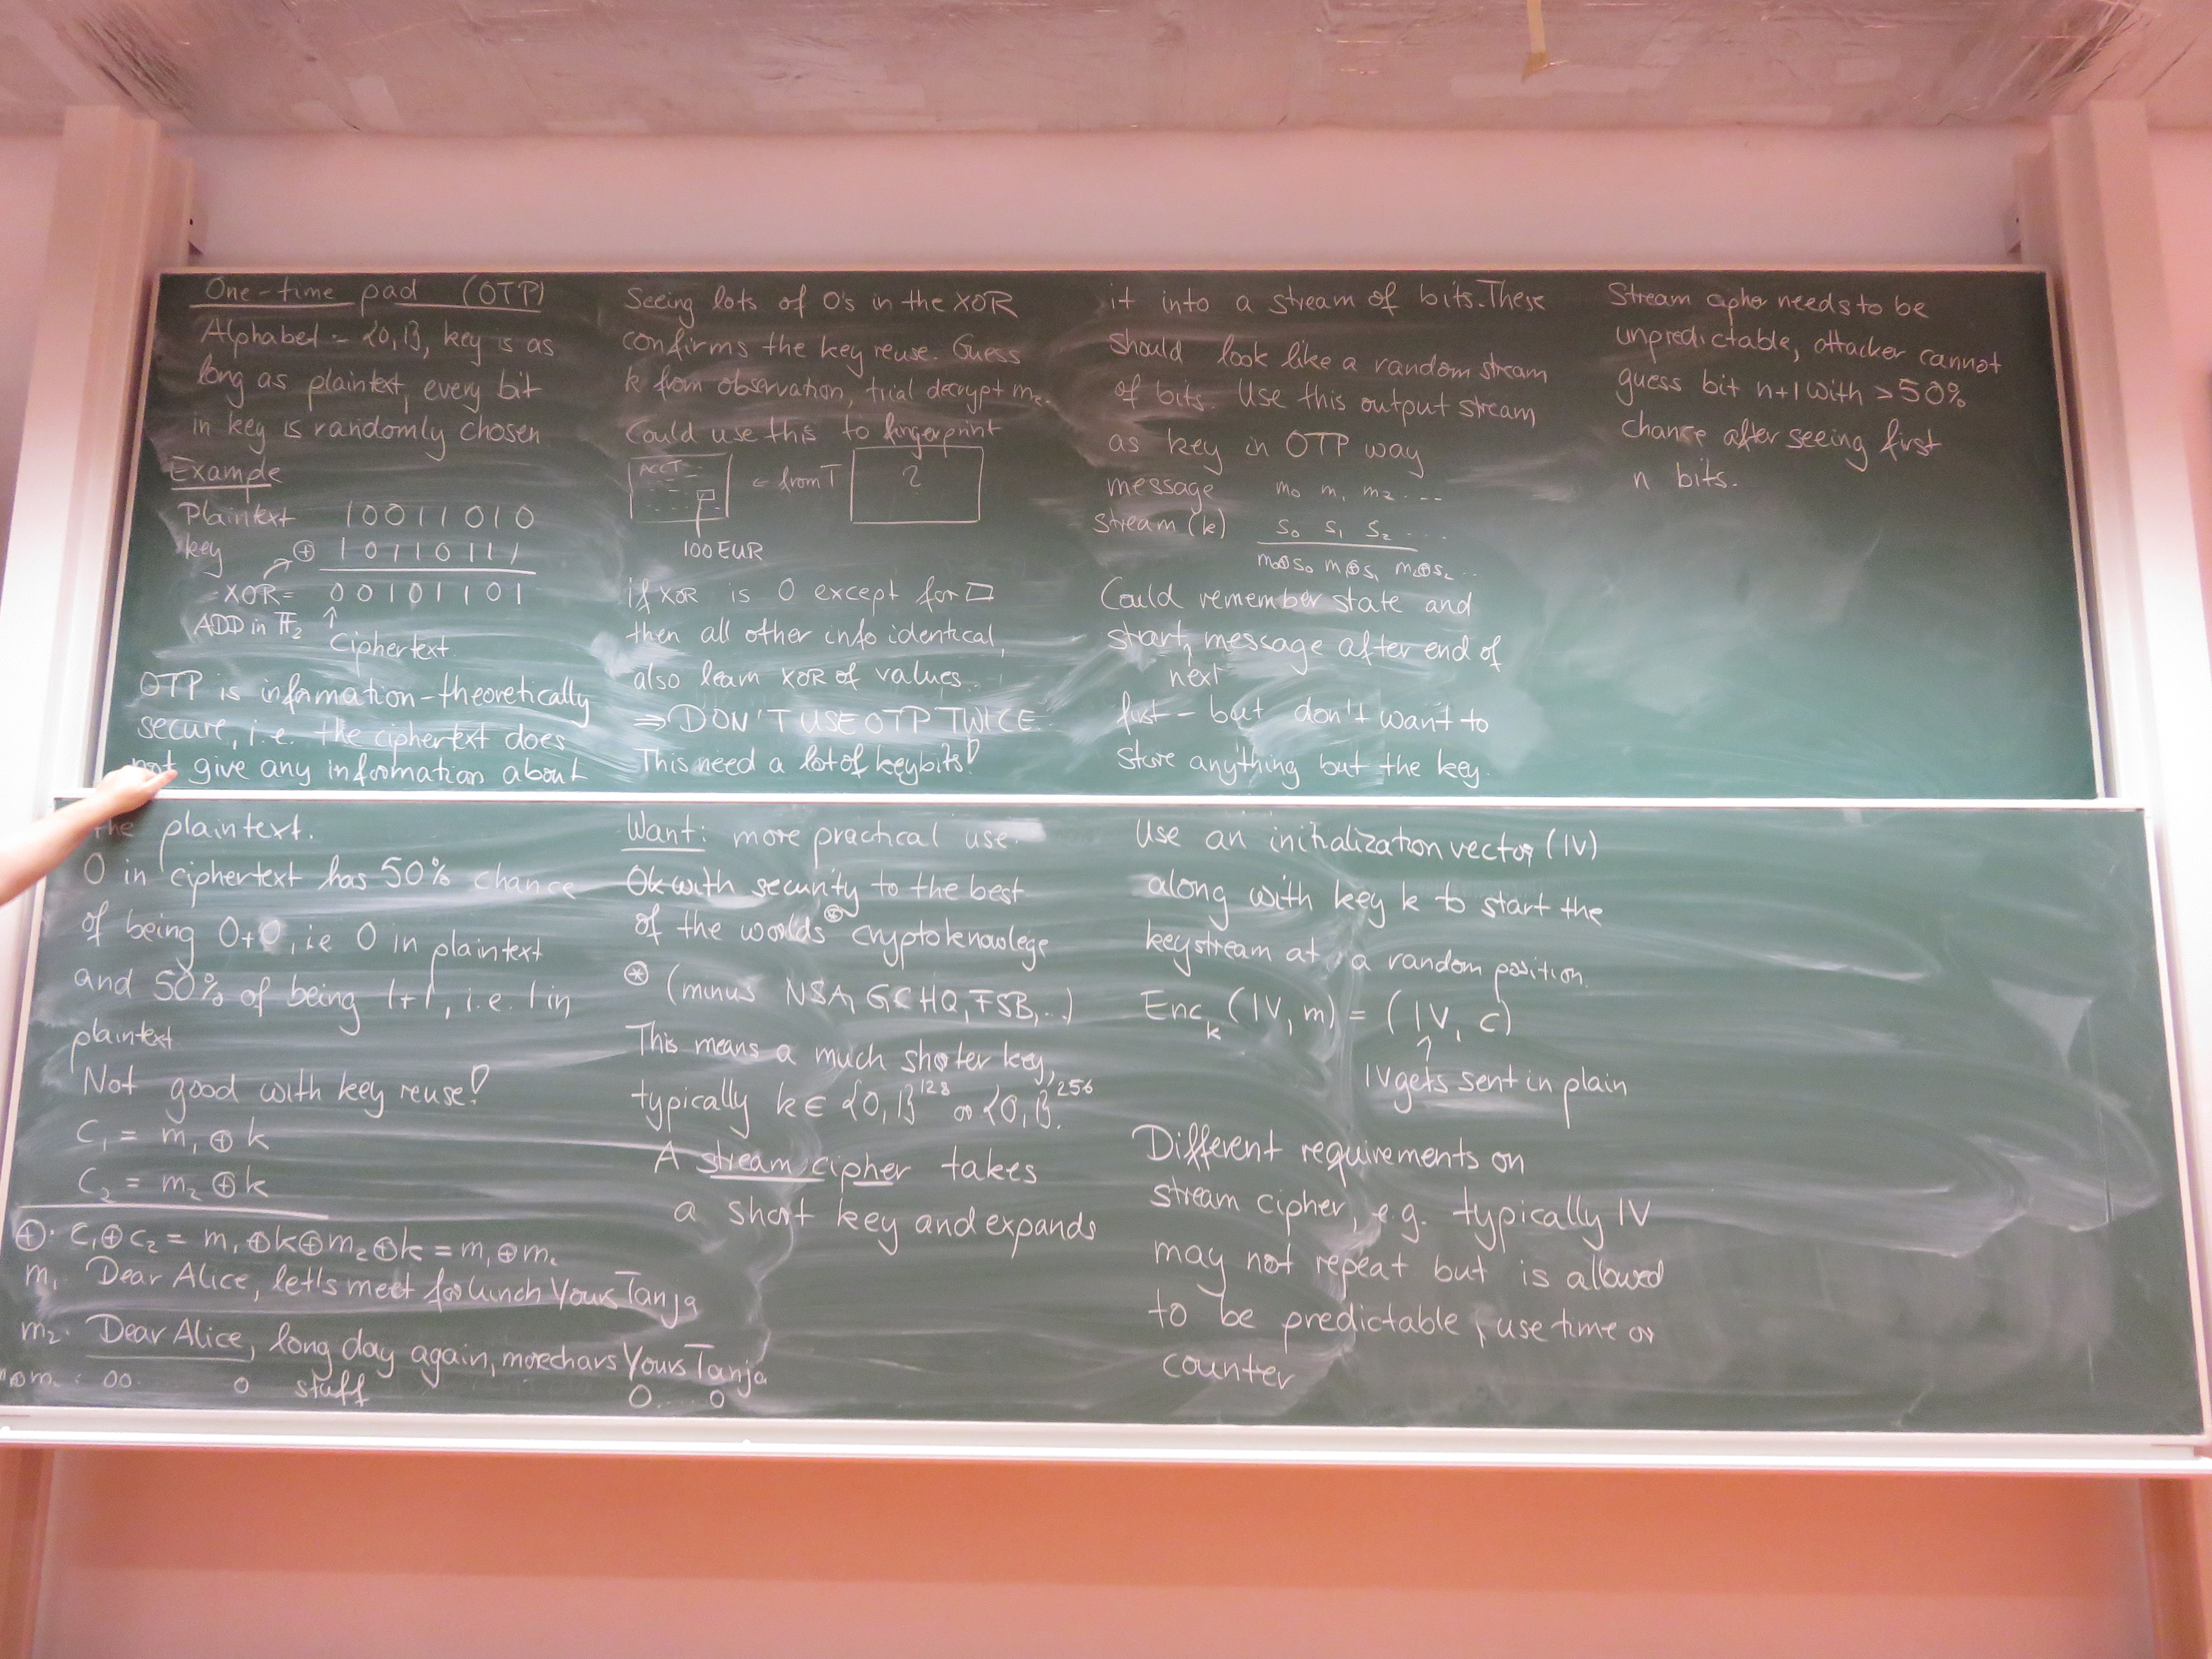 One-time pad (OTP)
Alphabet = {0,1}, key is as
long as plaintext, every bit
in key is randomly chosen
Example
Plaintext 10011010
key ⊕ 10110111
XOR = 00101101
ADD in F₂ ↑
Ciphertext
OTP is information-theoretically
secure, i.e. the ciphertext does
not give any information about
the plaintext.
0 in ciphertext has 50% chance
of being 0+0, ie 0 in plaintext
and 50% of being 1+1, i.e. 1 in
plaintext
Not good with key reuse!
C₁ = m₁ ⊕ k
C₂ = m₂ ⊕ k
⊕: C₁⊕C₂ = m₁⊕k⊕m₂⊕k = m₁⊕m₂
m₁ Dear Alice, let's meet for lunch Yours Tanja
m₂: Dear Alice, long day again, morechars Yours Tanja
00 0 stuff 0....0
Seeing lots of 0's in the XOR
confirms the key reuse. Guess
k from observation, trial decrypt m₂.
Could use this to fingerprint
ACCT ← from T 2
100 EUR
if XOR is 0 except for ▭
then all other info identical,
also learn XOR of values.
⇒ DON'T USE OTP TWICE
This need a lot of keybits!
Want: more practical use.
Ok with security to the best
of the worlds⊛ cryptoknowlege
⊛ (minus NSA, GCHQ, FSB,...)
This means a much shorter key,
typically k ∈ {0,1}¹²⁸ or {0,1}²⁵⁶.
A stream cipher takes
a short key and expands
it into a stream of bits. These
should look like a random stream
of bits. Use this output stream
as key in OTP way
message m₀ m₁ m₂ ....
stream (k) s₀ s₁ s₂ ....
m₀⊕s₀ m₁⊕s₁ m₂⊕s₂ ..
Could remember state and
start message after end of
next
first - but don't want to
store anything but the key.
Use an initialization vector (IV)
along with key k to start the
keystream at a random position.
Enc_k (IV, m) = (IV, c)
↑
IV gets sent in plain
Different requirements on
stream cipher, e.g. typically IV
may not repeat but is allowed
to be predictable, use time or
counter
Stream cipher needs to be
unpredictable, attacker cannot
guess bit n+1 with >50%
chance after seeing first
n bits.